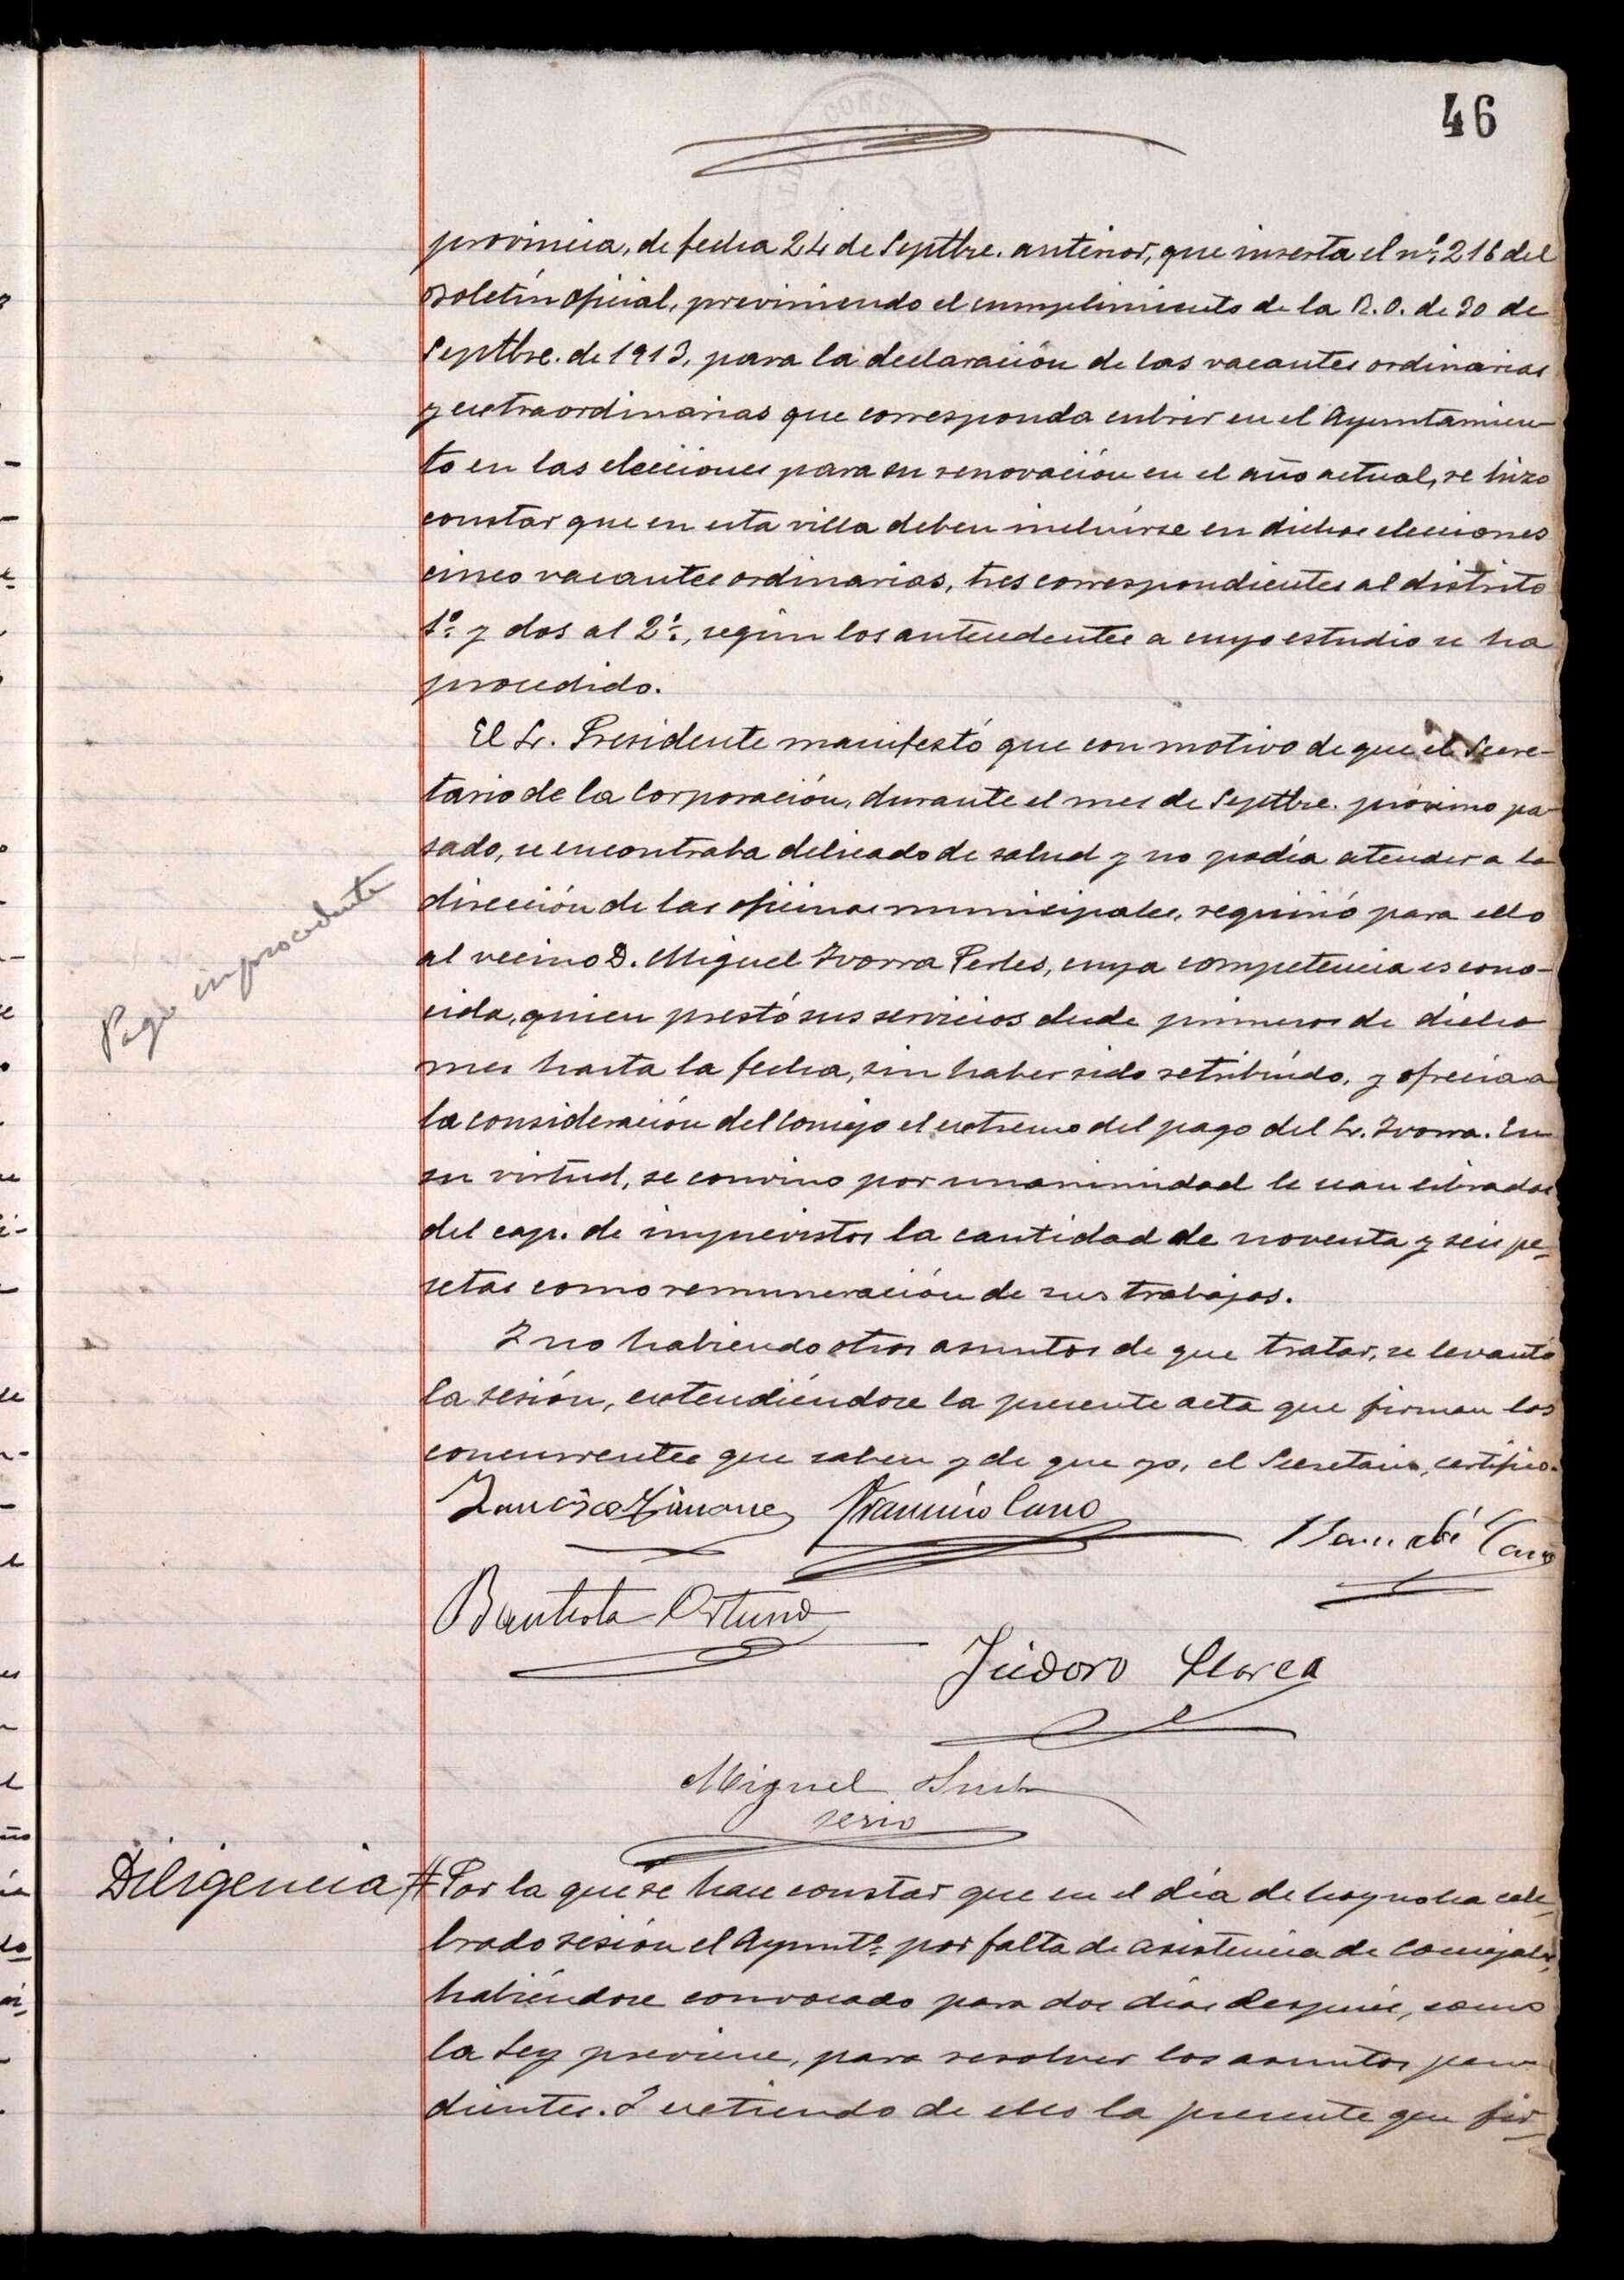 46
provincia, de fecha 24 de Septbre. anterior, que inserta el nº 216 del
Boletín oficial, previniendo el cumplimiento de la R.O. de 30 de
Septbre. de 1913, para la declaración de las vacantes ordinarias
y extraordinarias que corresponda cubrir en el Ayuntamien-
to en las elecciones para su renovación en el año actual, se hizo
constar que en esta villa deben incluírse en dichas elecciones
cinco vacantes ordinarias, tres correspondientes al distrito
1º y dos al 2º, según los antecedentes a cuyo estudio se ha
procedido.
El Sr. Presidente manifestó que con motivo de que el Secre-
tario de la Corporación, durante el mes de Septbre. próximo pa-
sado, se encontraba delicado de salud y no podía atender a la
dirección de las oficinas municipales, requirió para ello
al vecino D. Miguel Ivorra Perles, cuya competencia es cono-
cida, quien prestó sus servicios desde primeros de dicho
mes hasta la fecha, sin haber sido retribuído, y ofrecía a
la consideración del Concejo el extremo del pago del Sr. Ivorra. En
su virtud, se convino por unanimidad le sean libradas
del cap. de imprevistos la cantidad de noventa y seis pe-
setas como remuneración de sus trabajos.
Pago improcedente
Y no habiendo otros asuntos de que tratar, se levantó
la sesión, extendiéndose la presente acta que firman los
concurrentes que saben y de que yo, el Secretario, certifico.
Francisco Ximenez Francisco Cano
Bernabé Cano
Bautista Ortuno
Isidoro Llorca
Miguel
serio
Diligencia # Por la que se hace constar que en el día de hoy no ha cele-
brado sesión el Ayuntº por falta de asistencia de Concejales,
habiéndose convocado para dos días después, como
la Ley previene, para resolver los asuntos pen-
dientes. Y extiendo de ello la presente que fir-